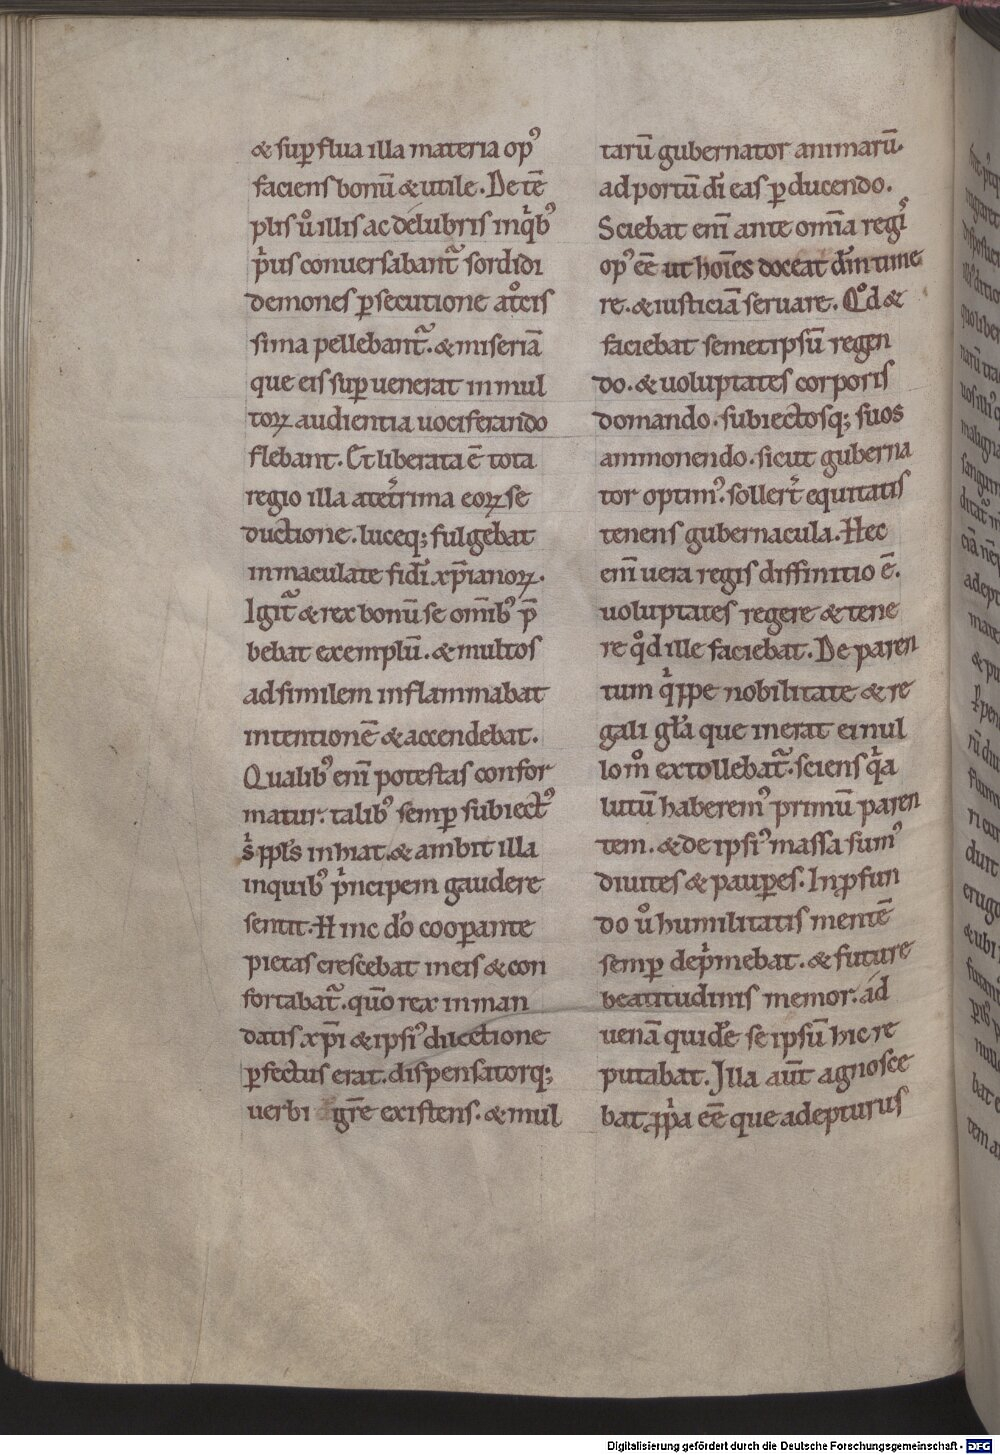 & sup̱flua illa materia opꝰ
faciens bonū & utile. De tē
plis ů illis ac delubris in qͥbꝰ
pͥus conuersabant᷑ sordidi
demones ꝑsecutione atͦcis
sima pellebant᷑. & miseriā
que eis suꝑuenerat in mul
toꝝ audientia uociferando
flebant. Et liberata ē tota
regio illa a tet͛rima eoꝝ se
ductione. luceq; fulgebat
inmaculate fidei xp̄ianoꝝ.
Igit᷑ & rex bonū se omībꝰ p̄
bebat exemplū. & multos
ad similem inflammabat
intentionē & accendebat.
Qualibꝰ eni̅ potestas confor
matur. talibꝰ semꝑ subiectꝰ
sͥ ppl̅s inhiat. & ambit illa
in quibꝰ pͥncipem gaudere
sentit. Hinc do̅ cooꝑante
pietas crescebat in eis & con
fortabat᷑. quō rex in man
datis xp̄i & ipsiꝰ dilectione
ꝑfectus erat. dispensatorq;
uerbi gr̄e existens. & mul
tarū gubernator animarū.
ad portū di̅ eas ꝑducendo.
Sciebat eni̅ ante omi̅a regiͥs
opꝰ eē ut hoīes doceat dm̅ time
re. & iusticiā seruare. Qͦd &
faciebat semetipsū regen
do. & uoluptates corporis
domando. subiectosq; suos
ammonendo. sicut guberna
tor optimꝰ. sollert͛ equitatis
tenens gubernacula. Hec
eni̅ uera regis diffinitio ē.
uoluptates regere & tene
re qͦd ille faciebat. De paren
tum qͥppe nobilitate & re
gali gl̅a que inerat ei nul
lo mͦ extollebat᷑. sciens qͥa
lutū haberemꝰ primū paren
tem. & de ipsiꝰ massa sumꝰ
diuites & pauꝑes. In ꝓfun
do ů humilitatis mentē
semꝑ depͥmebat. & future
beatitudinis memor. ad
uenā quide̅ se ipsū hic re
putabat. Illa aut̅ agnosce
bat ꝓpͥa eē que adepturus
Digitalisierung gefördert durch die Deutsche Forschungsgemeinschaft - DFG